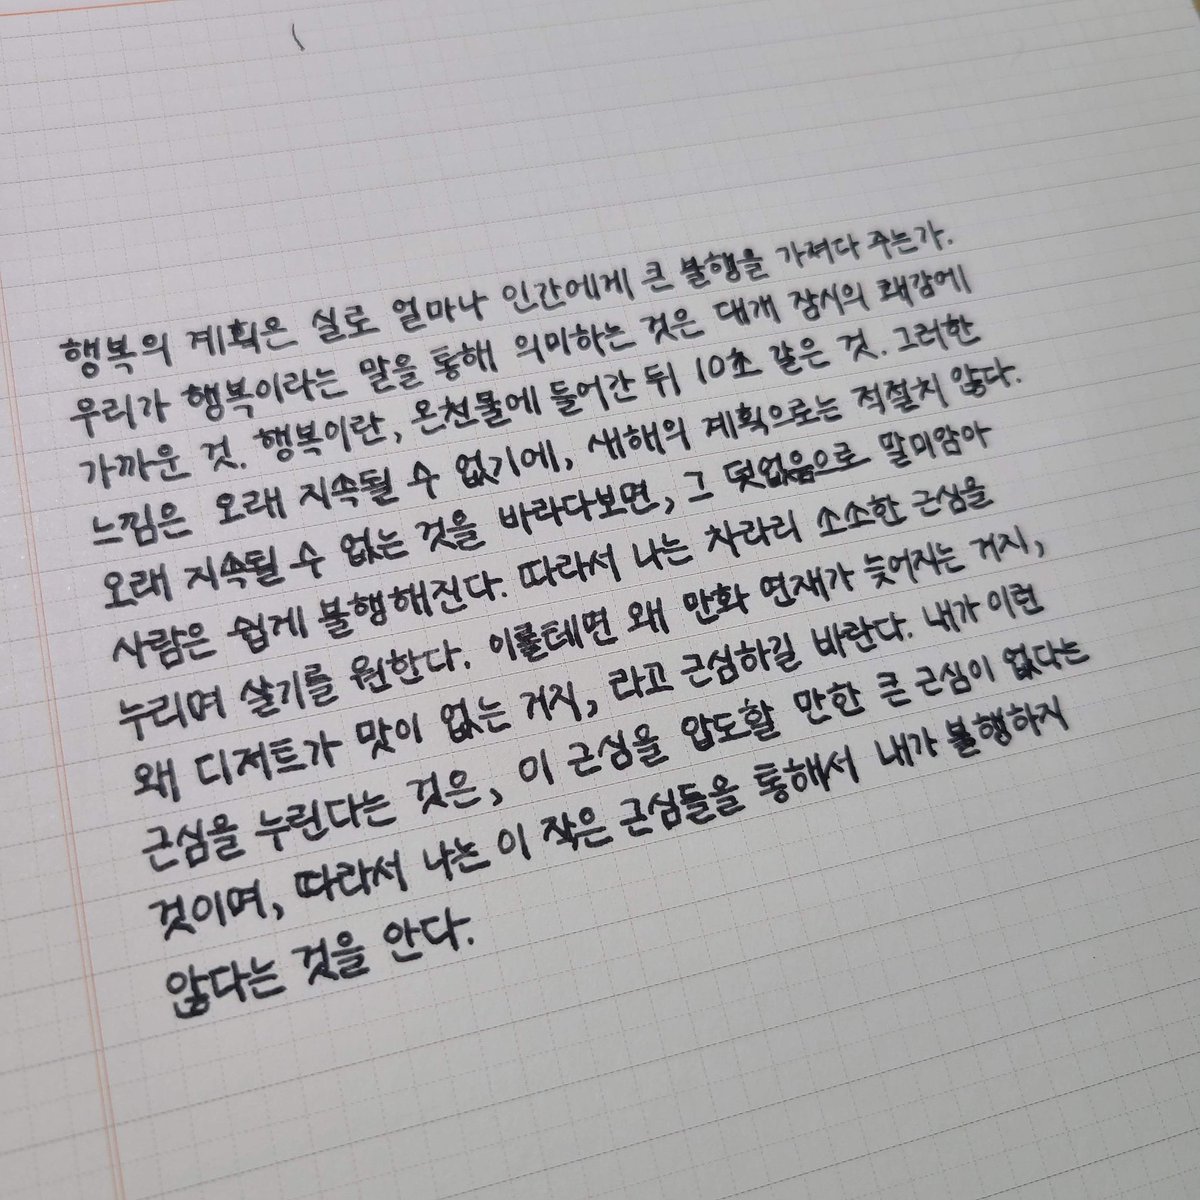 행복의 계획은 실로 얼마나 인간에게 큰 불행을 가져다 주는가.
우리가 행복이라는 말을 통해 의미하는 것은 대개 잠시의 쾌감에
가까운 것. 행복이란, 온천물에 들어간 뒤 10초 같은 것. 그러한
느낌은 오래 지속될 수 없기에, 새해의 계획으로는 적절치 않다.
오래 지속될 수 없는 것을 바라다보면, 그 덧없음으로 말미암아
사람은 쉽게 불행해진다. 따라서 나는 차라리 소소한 근심을
누리며 살기를 원한다. 이를테면 왜 만화 연재가 늦어지는 거지,
왜 디저트가 맛이 없는 거지, 라고 근심하길 바란다. 내가 이런
근심을 누린다는 것은, 이 근심을 압도할 만한 큰 근심이 없다는
것이며, 따라서 나는 이 작은 근심들을 통해서 내가 불행하지
않다는 것을 안다.